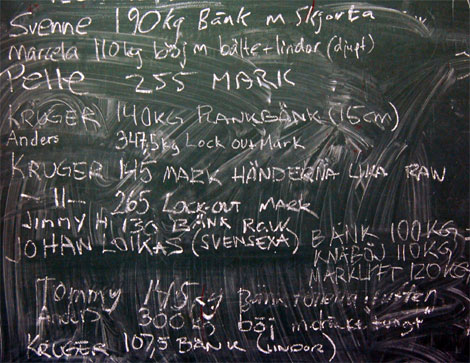 Svenne 190kg Bänk m skjorta
Marcela 110kg böj m bälte + lindor (djupt)
Pelle 255 MARK
KRUGER 140KG PLANKBÄNK (15cm)
Anders 347,5kg Lock out Mark
KRUGER 145 MARK HÄNDERNA LIKA RAW
-11- 265 LOCK-OUT MARK
Jimmy H 130 BÄNK RAW
JOHAN LOIKAS (SVENSEXA) BÄNK 100KG
KNÄBÖJ 110KG
MARKLYFT 120KG
Tommy 145kg Bänk
Anders 300kg böj
KRUGER 107,5 BÄNK (LINDOR)